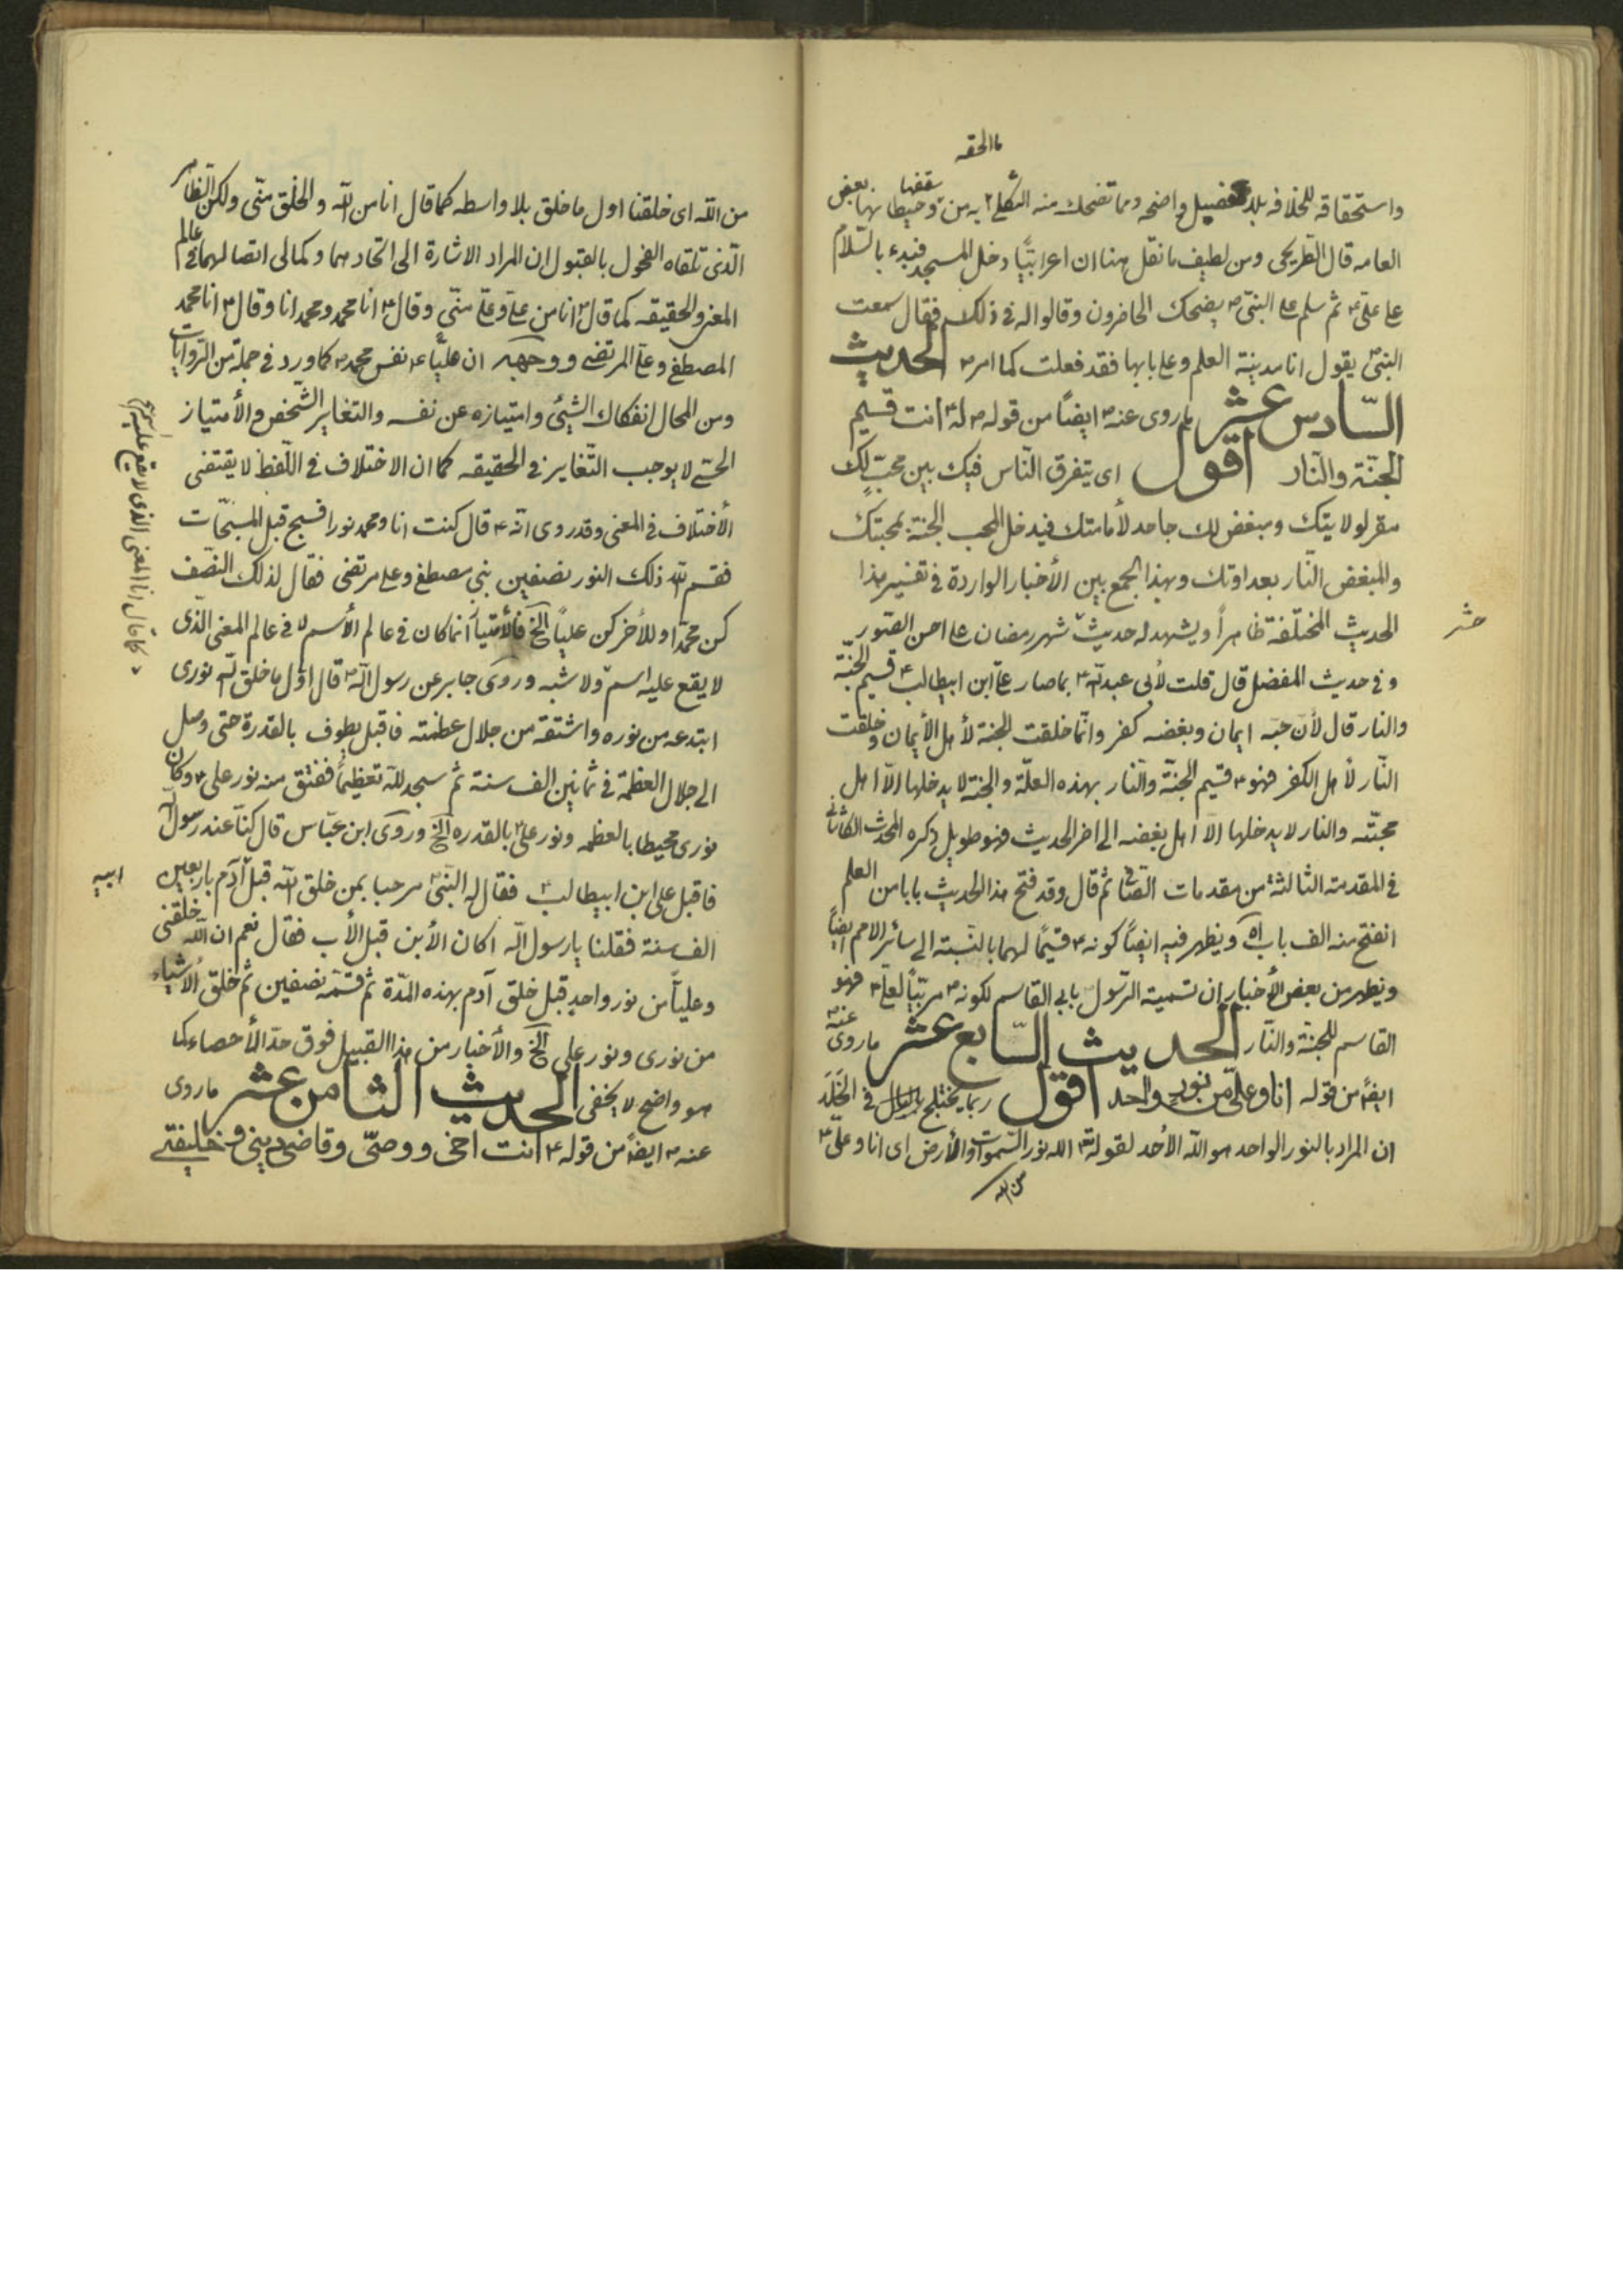 ما الحقه
واستحقاقه للخلافه بلا تفضيل واضحه ومما تضحك منه الثكلى ما به من سقفها وحيطانها بعض
العامه قال الطريحى ومن لطيف ما نقل هنا ان اعرابيّاً دخل المسجد فبدء بالسّلام
على علىّ ع ثم سلم على النبىّ ص فضحك الحاضرون وقالوا له فى ذلك فقال سمعت
النبىّ ص يقول انا مدينة العلم وعلى بابها فقد فعلت كما امر ص الحديث
السّادس عشر ما روى عنه ص ايضاً من قوله ص له ع انت قسيم
الجنّة والنّار اقول اى يتفرق النّاس فيك بين محبّ لك
مقر لولايتك ومبغض لك جاحد لأمامتك فيدخل المحب الجنة بمحبتك
والمبغض النّار بعداوتك وبهذا الجمع بين الأخبار الواردة فى تفسير هذا
الحديث المختلفة ظاهراً ويشهد له حديث شهر رمضان على احسن الصور
وفى حديث المفضل قال قلت لأبى عبد الله ع بما صار علىّ ابن ابيطالب ع قسيم الجنّة
والنار قال لأن حبّه ايمان وبغضه كفر وانّما خلقت الجنة لأهل الأيمان وخلقت
النّار لأهل الكفر فهو ع قسيم الجنّة والنّار بهذه العلّة والجنة لا يدخلها الاّ اهل
محبتّه والنار لا يدخلها الاّ اهل بغضه الى اخر الحديث فهو طويل ذكره المحدث الكاشانى
فى المقدمته الثالثة من مقدمات الصّافى ثم قال وقد فتح هذا الحديث بابا من العلم
انفتح منه الف باب اه ويظهر فيه ايضاً كونه ع قسيمًا لهما بالنّسبته الى سائر الامم ايضاً
ويظهر من بعض الأخبار ان تسمية الرّسول بابى القاسم لكونه ص مربّياً لعلى ع فهو
القاسم للجنة والنّار الحديث السّابع عشر ما روى عنه ص
ايضاً من قوله انا وعلىّ من نور واحد اقول ربما يختلج بالبال فى الخَلَد
ان المراد بالنور الواحد هو الله الأحد لقوله تع الله نور السّموات والأرض اى انا وعلىّ ع
من الله
من الله اى خلقنا اول ما خلق بلا واسطه كما قال انا من الله والخلق منّى ولكن الظاهر
الّذى تلقاه الفحول بالقبول ان المراد الاشارة الى اتحادهما وكمالى اتصالهما فى عالم
المعنى والحقيقه كما قال ص انا من علىّ وعلىّ منّى وقال ع انا محمد ومحمد انا وقال ع انا محمد
المصطفى وعلىّ المرتضى ووجهه ان عليّاً ع نفس محمد ص كما ورد فى جملة من الرّوايات
ومن المحال انفكاك الشيئى وامتيازه عن نفسه والتغاير الشّخصى والأمتياز
الحسّى لا يوجب التّغاير فى الحقيقه كما ان الاختلاف فى اللّفظ لا يقتضى
الأختلاف فى المعنى وقد روى انّه ع قال كنت انا ومحمد نورا فسبح قبل المسبحّات
فقسم الله ذلك النور نصفين بنى مصطفى وعلى مرتضى فقال لذلك النّصف
كن محمّدا وللأخر كن علياً الخ فالأمتياز انما كان فى عالم الأسم لا فى عالم المعنى الذى
لا يقع عليه اسم ولا شبه وروى جابر عن رسول الله ص قال اوّل ما خلق الله نورى
ابتدعه من نوره واشتقه من جلال عظمته فاقبل يطوف بالقدرة حتى وصل
الى جلال العظمة فى ثمانين الف سنة ثم سجد لله تعظيماً ففتق منه نور على ع وكان
نورى محيطا بالعظمه ونور على ع بالقدره الخ وروى ابن عبّاس قال كنّا عند رسول الله
فاقبل على ابن ابيطالب ع فقال له النبىّ ص مرحبا بمن خلق الله قبل آدم باربعين
الف سنة فقلنا يا رسول الله اكان الأبن قبل الأب فقال نعم ان الله خلقنى
وعليّاً من نور واحدٍ قبل خلق آدم بهذه المدّة ثم قسّمه نصفين ثم خلق الأشياء
من نورى ونور على الخ والأخبار من هذا القبيل فوق حدّ الأحصاء كما
هو واضح لا يخفى الحديث الثامن عشر ما روى
عنه ص ايضاً من قوله ع انت اخى ووصىّ وقاضى دينى وخليفتى
كما قال انا المعنى الذى لا يقع عليه اسم
ابيه